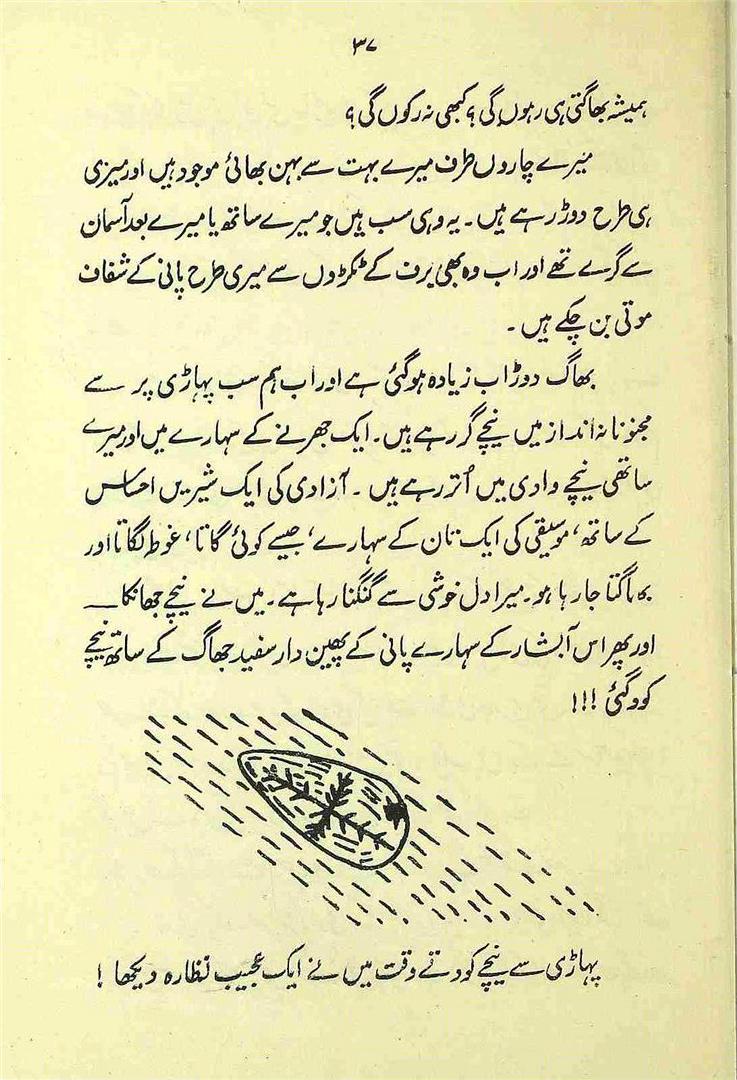 ۳۷
ہمیشہ بھاگتی ہی رہوں گی؟ کبھی نہ رکوں گی؟
میرے چاروں طرف میرے بہت سے بہن بھائی موجود ہیں اور میری
ہی طرح دوڑ رہے ہیں۔ یہ وہی سب ہیں جو میرے ساتھ یا میرے بعد آسمان
سے گرے تھے اور اب وہ بھی برف کے ٹکڑوں سے میری طرح پانی کے شفاف
موتی بن چکے ہیں۔
بھاگ دوڑ اب زیادہ ہو گئی ہے اور اب ہم سب پہاڑی پر سے
مجنونانہ انداز میں نیچے گر رہے ہیں۔ ایک جھرنے کے سہارے میں اور میرے
ساتھی نیچے وادی میں اُتر رہے ہیں۔ آزادی کی ایک شیریں احساس
کے ساتھ، موسیقی کی ایک تان کے سہارے، جیسے کوئی گاتا، غوطہ لگاتا اور
بھاگتا جا رہا ہو۔ میرا دل خوشی سے گنگنا رہا ہے۔ میں نے نیچے جھانکا ــــ
اور پھر اس آبشار کے سہارے پانی کے پھین دار سفید جھاگ کے ساتھ نیچے
کود گئی !!!
پہاڑی سے نیچے کودتے وقت میں نے ایک عجیب نظارہ دیکھا !